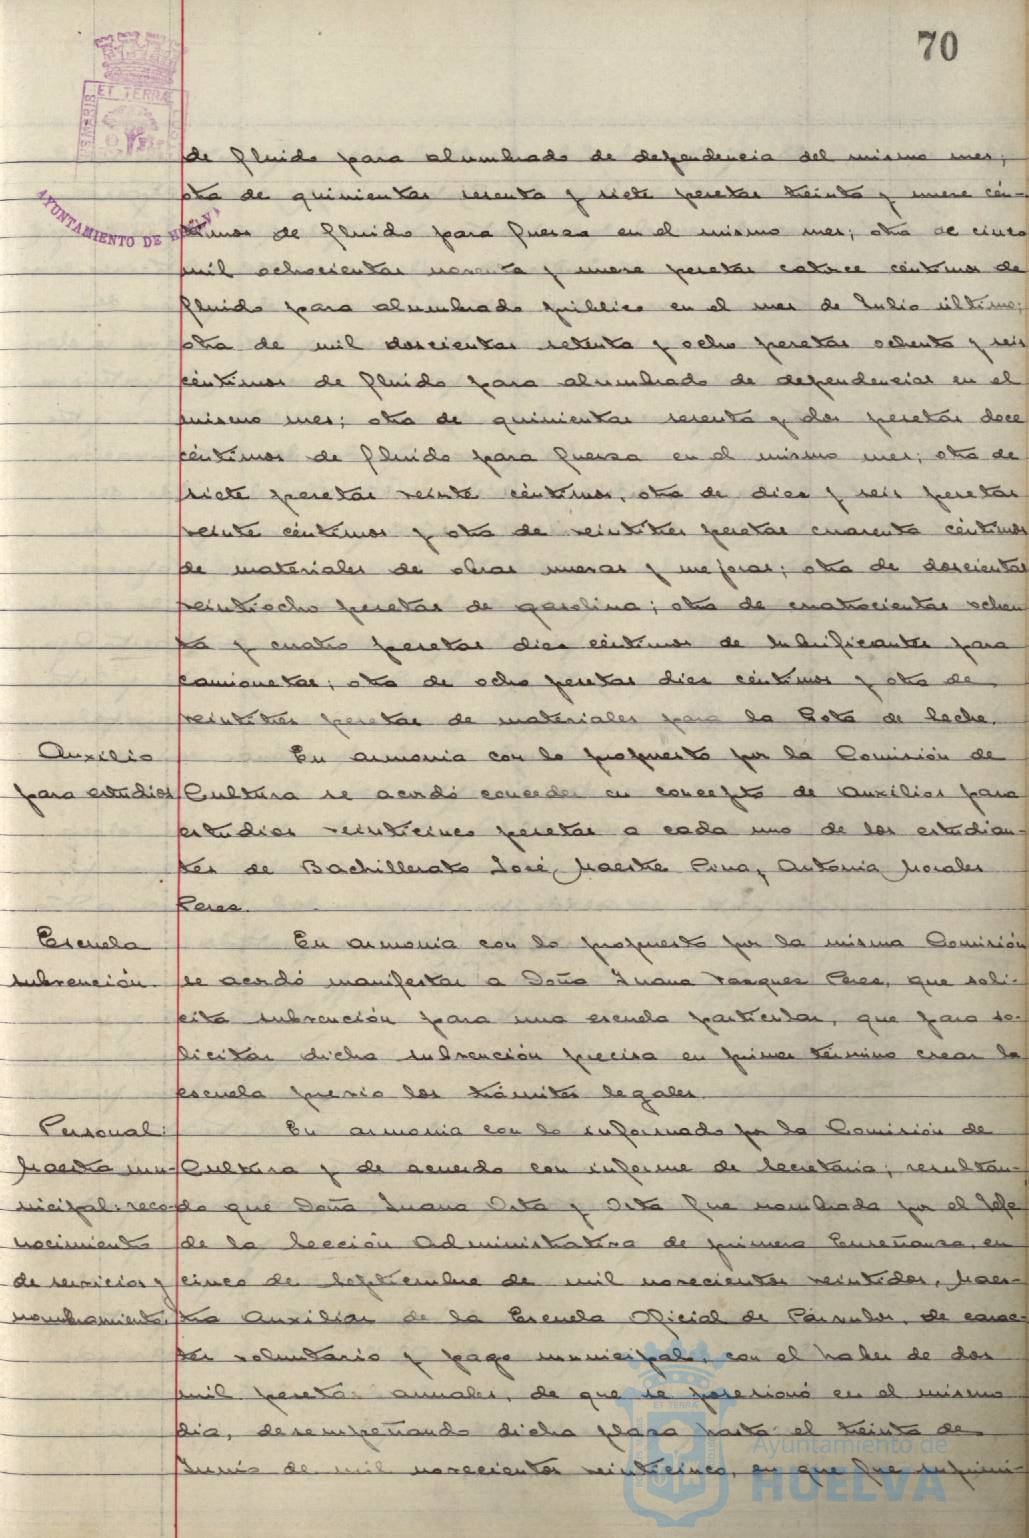 70
ET TERRA
AYUNTAMIENTO DE HUELVA
de fluido para alumbrado de dependencia del mismo mes;
otra de quinientas sesenta y siete pesetas treinta y nueve cén-
timos de fluido para fuerza en el mismo mes; otra de cinco
mil ochocientas noventa y nueve pesetas catorce céntimos de
fluido para alumbrado público en el mes de Julio último;
otra de mil doscientas setenta y ocho pesetas ochenta y seis
céntimos de fluido para alumbrado de dependencias en el
mismo mes; otra de quinientas sesenta y dos pesetas doce
céntimos de fluido para fuerza en el mismo mes; otra de
siete pesetas veinte céntimos, otra de diez y seis pesetas
veinte céntimos y otra de veintitres pesetas cuarenta céntimos
de materiales de obras nuevas y mejoras; otra de doscientas
veintiocho pesetas de gasolina; otra de cuatrocientas ochen
ta y cuatro pesetas diez céntimos de lubrificantes para
camionetas; otra de ocho pesetas diez céntimos y otra de
veintitres pesetas de materiales para la Gota de Leche.
Auxilio
para estudios
En armonia con lo propuesto por la Comisión de
Cultura se acordó conceder en concepto de auxilios para
estudios veinticinco pesetas a cada uno de los estudian-
tes de Bachillerato José Maestre Pina, Antonia Morales
Perez.
Escuela
subvención.
En armonia con lo propuesto por la misma Comisión
se acordó manifestar a Doña Juana Vazquez Perez, que soli-
cita subvención para una escuela particular, que para so-
licitar dicha subvención precisa en primer término crear la
escuela previo los trámites legales.
Personal:
Maestra mu-
nicipal: reco-
nocimiento
de servicios y
nombramiento.
En armonia con lo informado por la Comisión de
Cultura y de acuerdo con informe de Secretaria; resultan-
do que Doña Juana Orta y Orta fue nombrada por el Jefe
de la Sección Administrativa de primera Enseñanza, en
cinco de Septiembre de mil novecientos veintidos, Maes-
tra Auxiliar de la Escuela Oficial de Párvulos, de carac-
ter voluntario y pago municipal, con el haber de dos
mil pesetas anuales, de que se posesionó en el mismo
dia, desempeñando dicha plaza hasta el treinta de
Junio de mil novecientos veinticinco, en que fue suprimi-
Ayuntamiento de
HUELVA